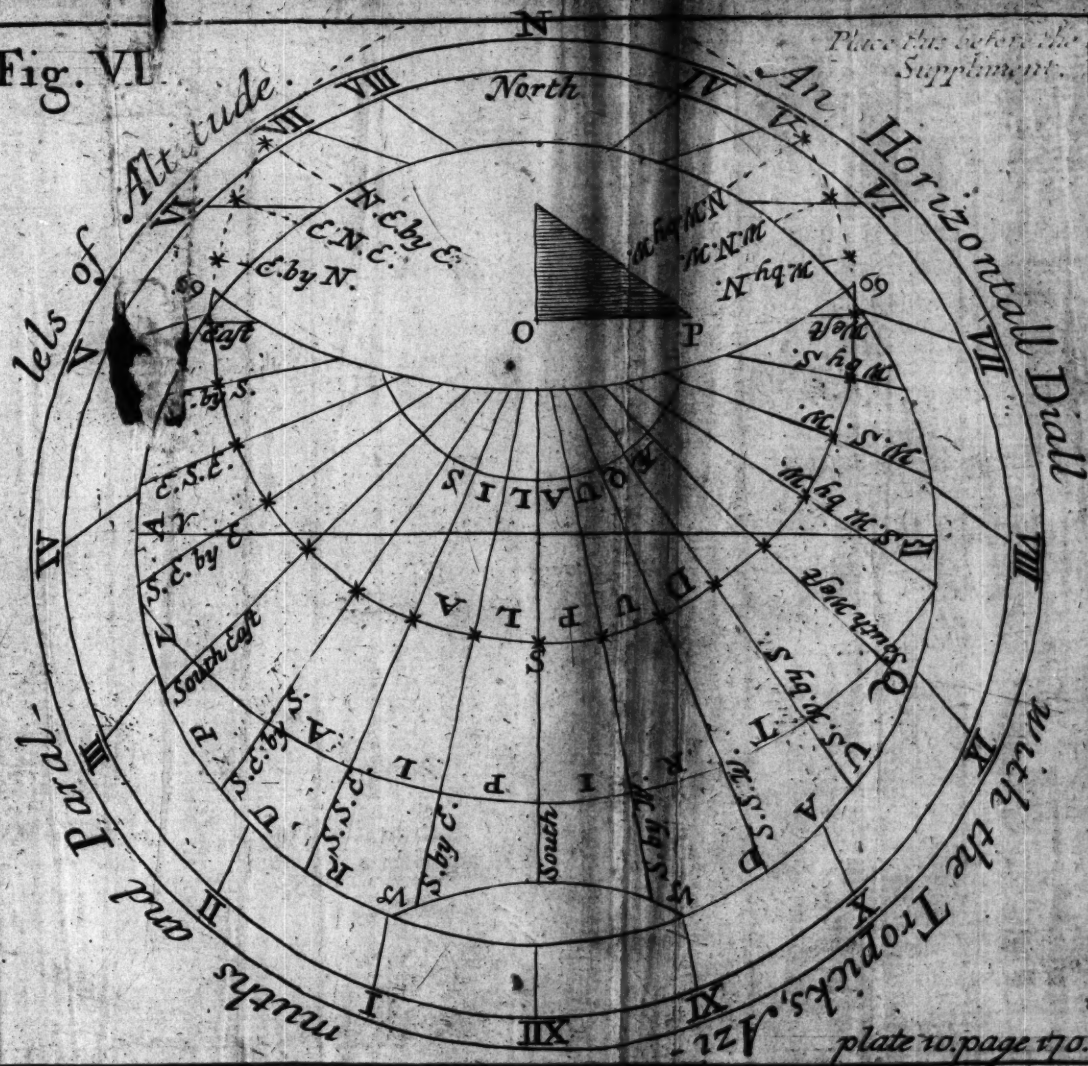 Fig. VI.
Place this before the
Suppliment.
An Horizontall Diall
with the Tropicks, Azi-
muths and Paral-
lels of Altitude.
N
North
VIII
IV
VII
V
VI
VI
V
VII
IV
VIII
III
IX
II
X
I
XII
XI
N.E.by E.
E.N.E.
E.by N.
East
E.by S.
E.S.E.
S.E. by E
South East
S.E.by S.
S.S.E.
S.by E.
South
S by W.
S.S.W.
S.W.by S.
South West
S.W by W.
W.S.W.
W by S.
West
W.by N.
W.N.W.
N.W.by W.
O
P
♋
♋
♈
♎
♑
♑
S
ÆQUALIS
DUPLA
TRIPLA
QUADRUPLA
plate 10.page 170.